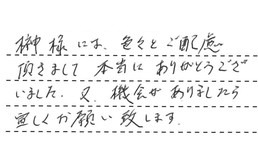 榊様には、色々とご配慮
頂きまして 本当に ありがとうござ
いました。又、機会が ありましたら
宜しくお願い致します。